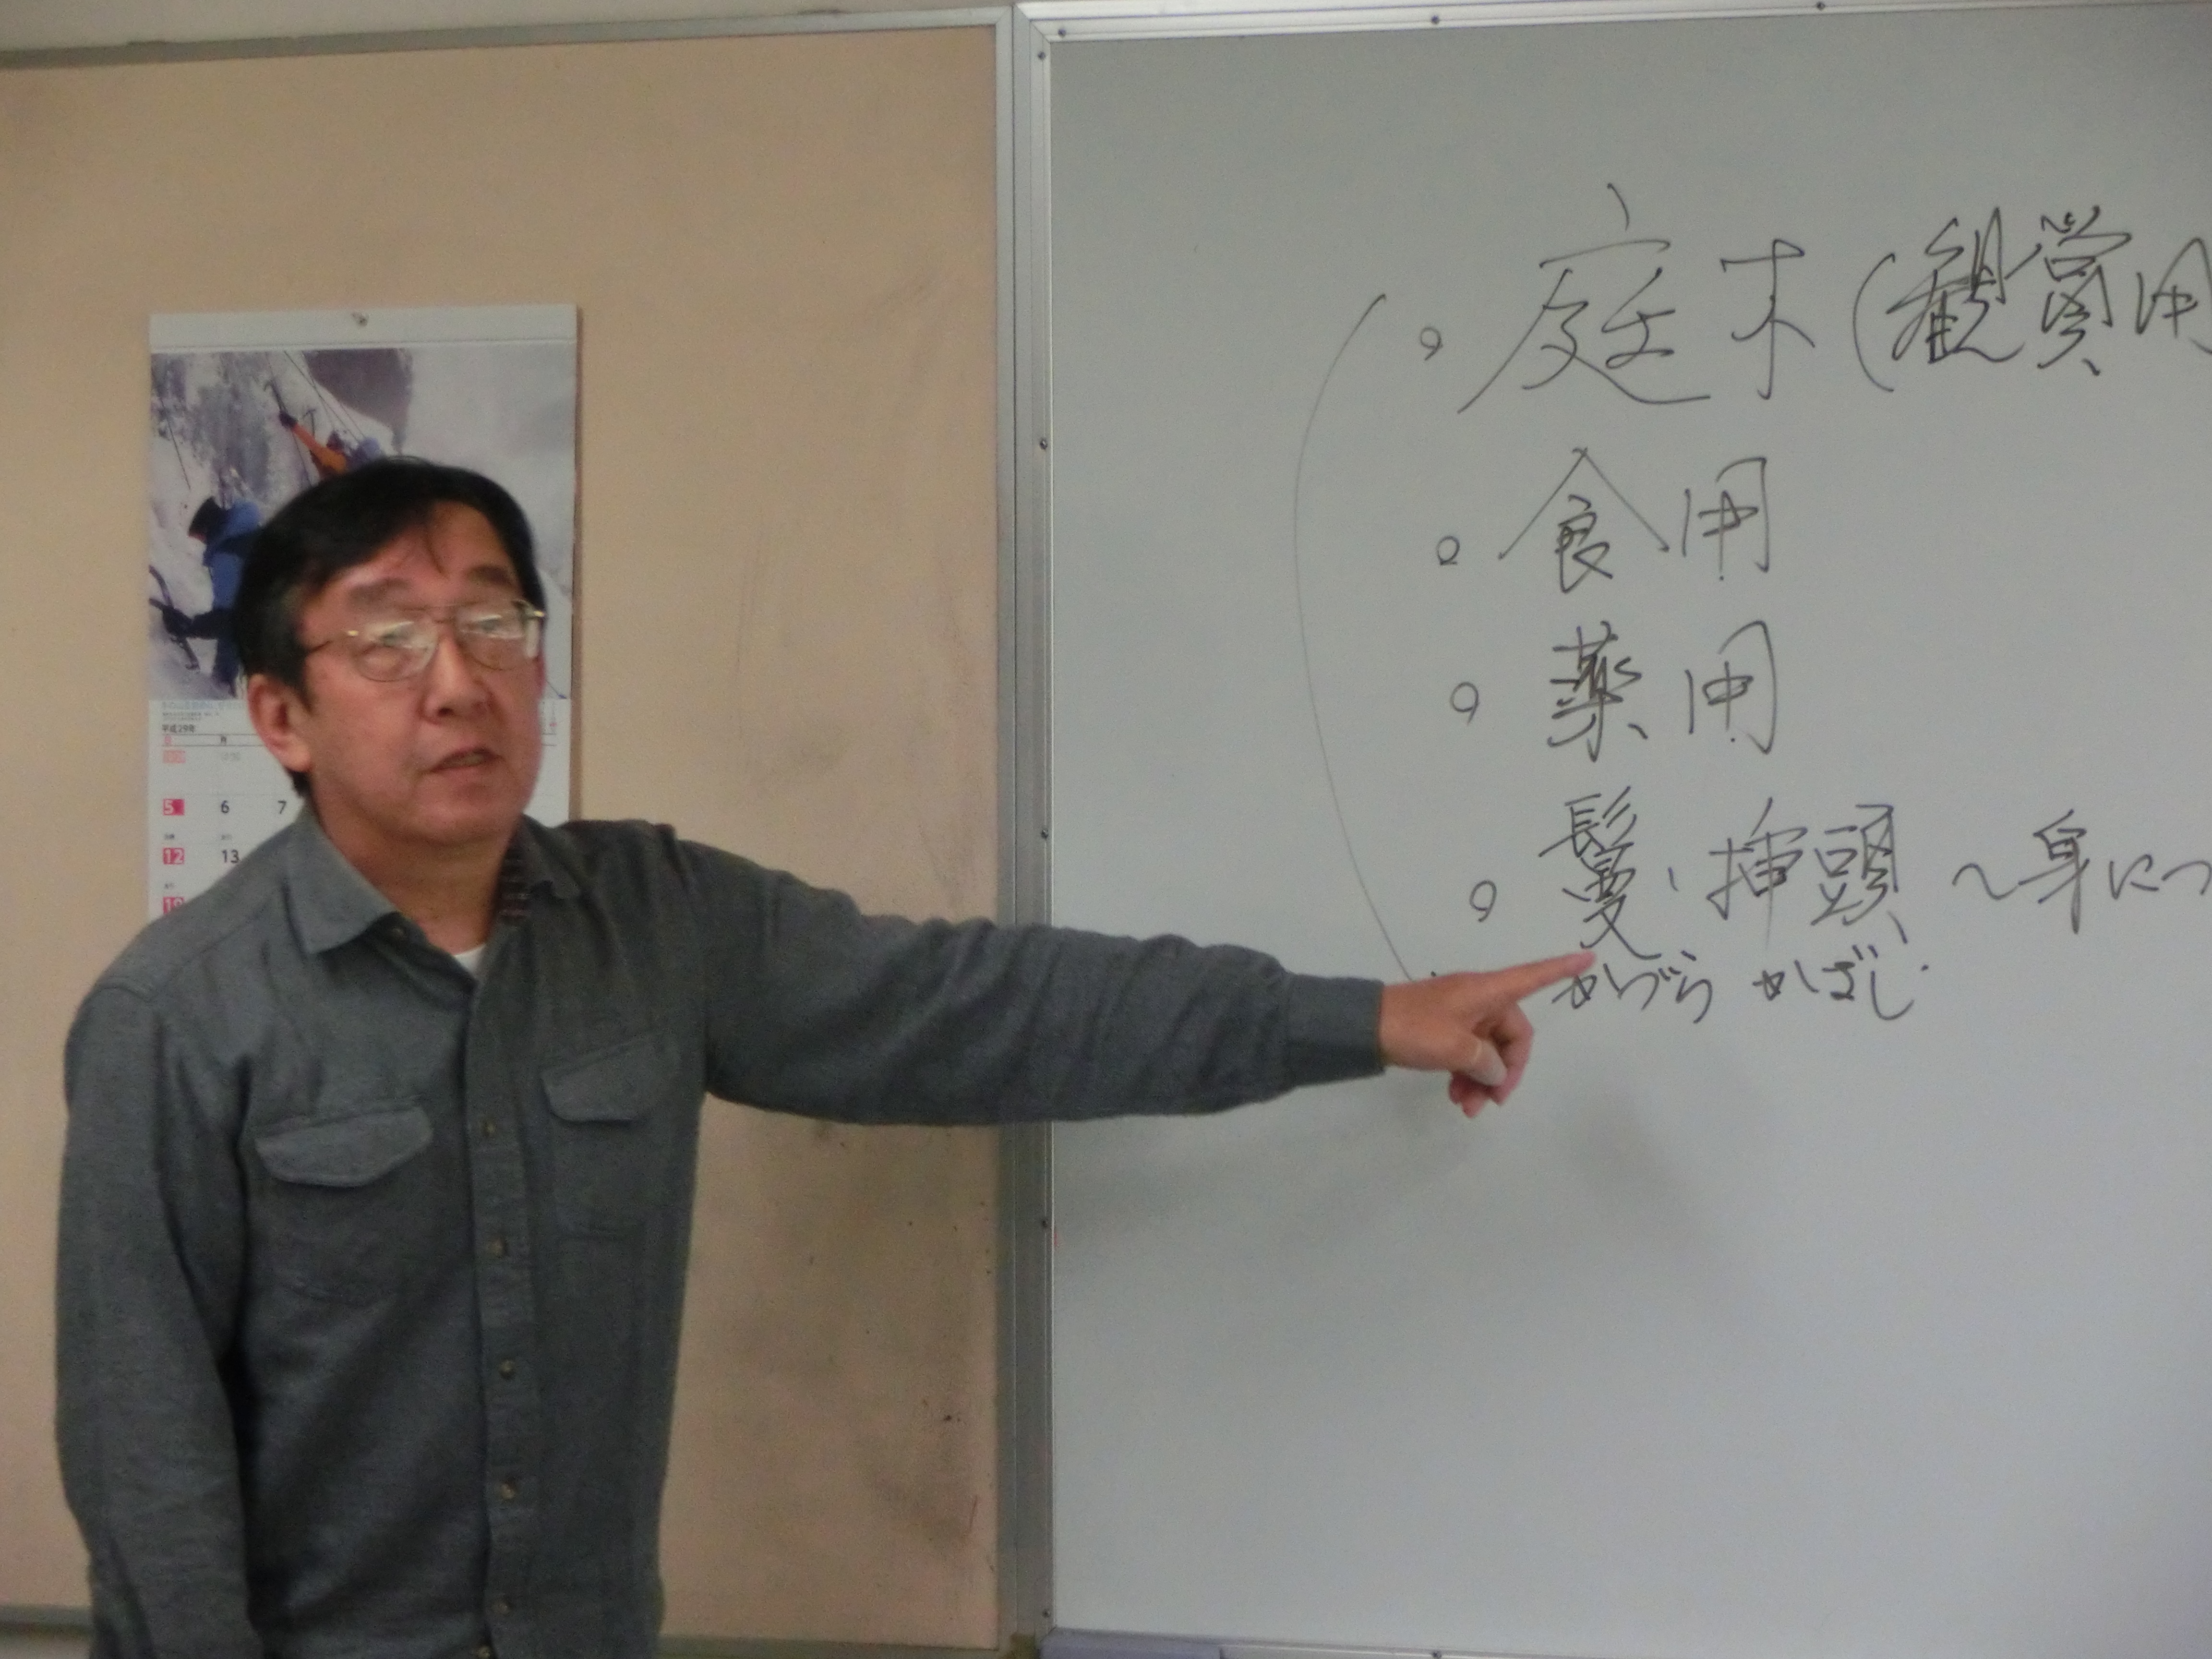 平成29年
日 月
5 6 7
12 13
19
。庭木(観賞用
。食用
。薬用
。鬘、挿頭 〜身につ
かづら かざし